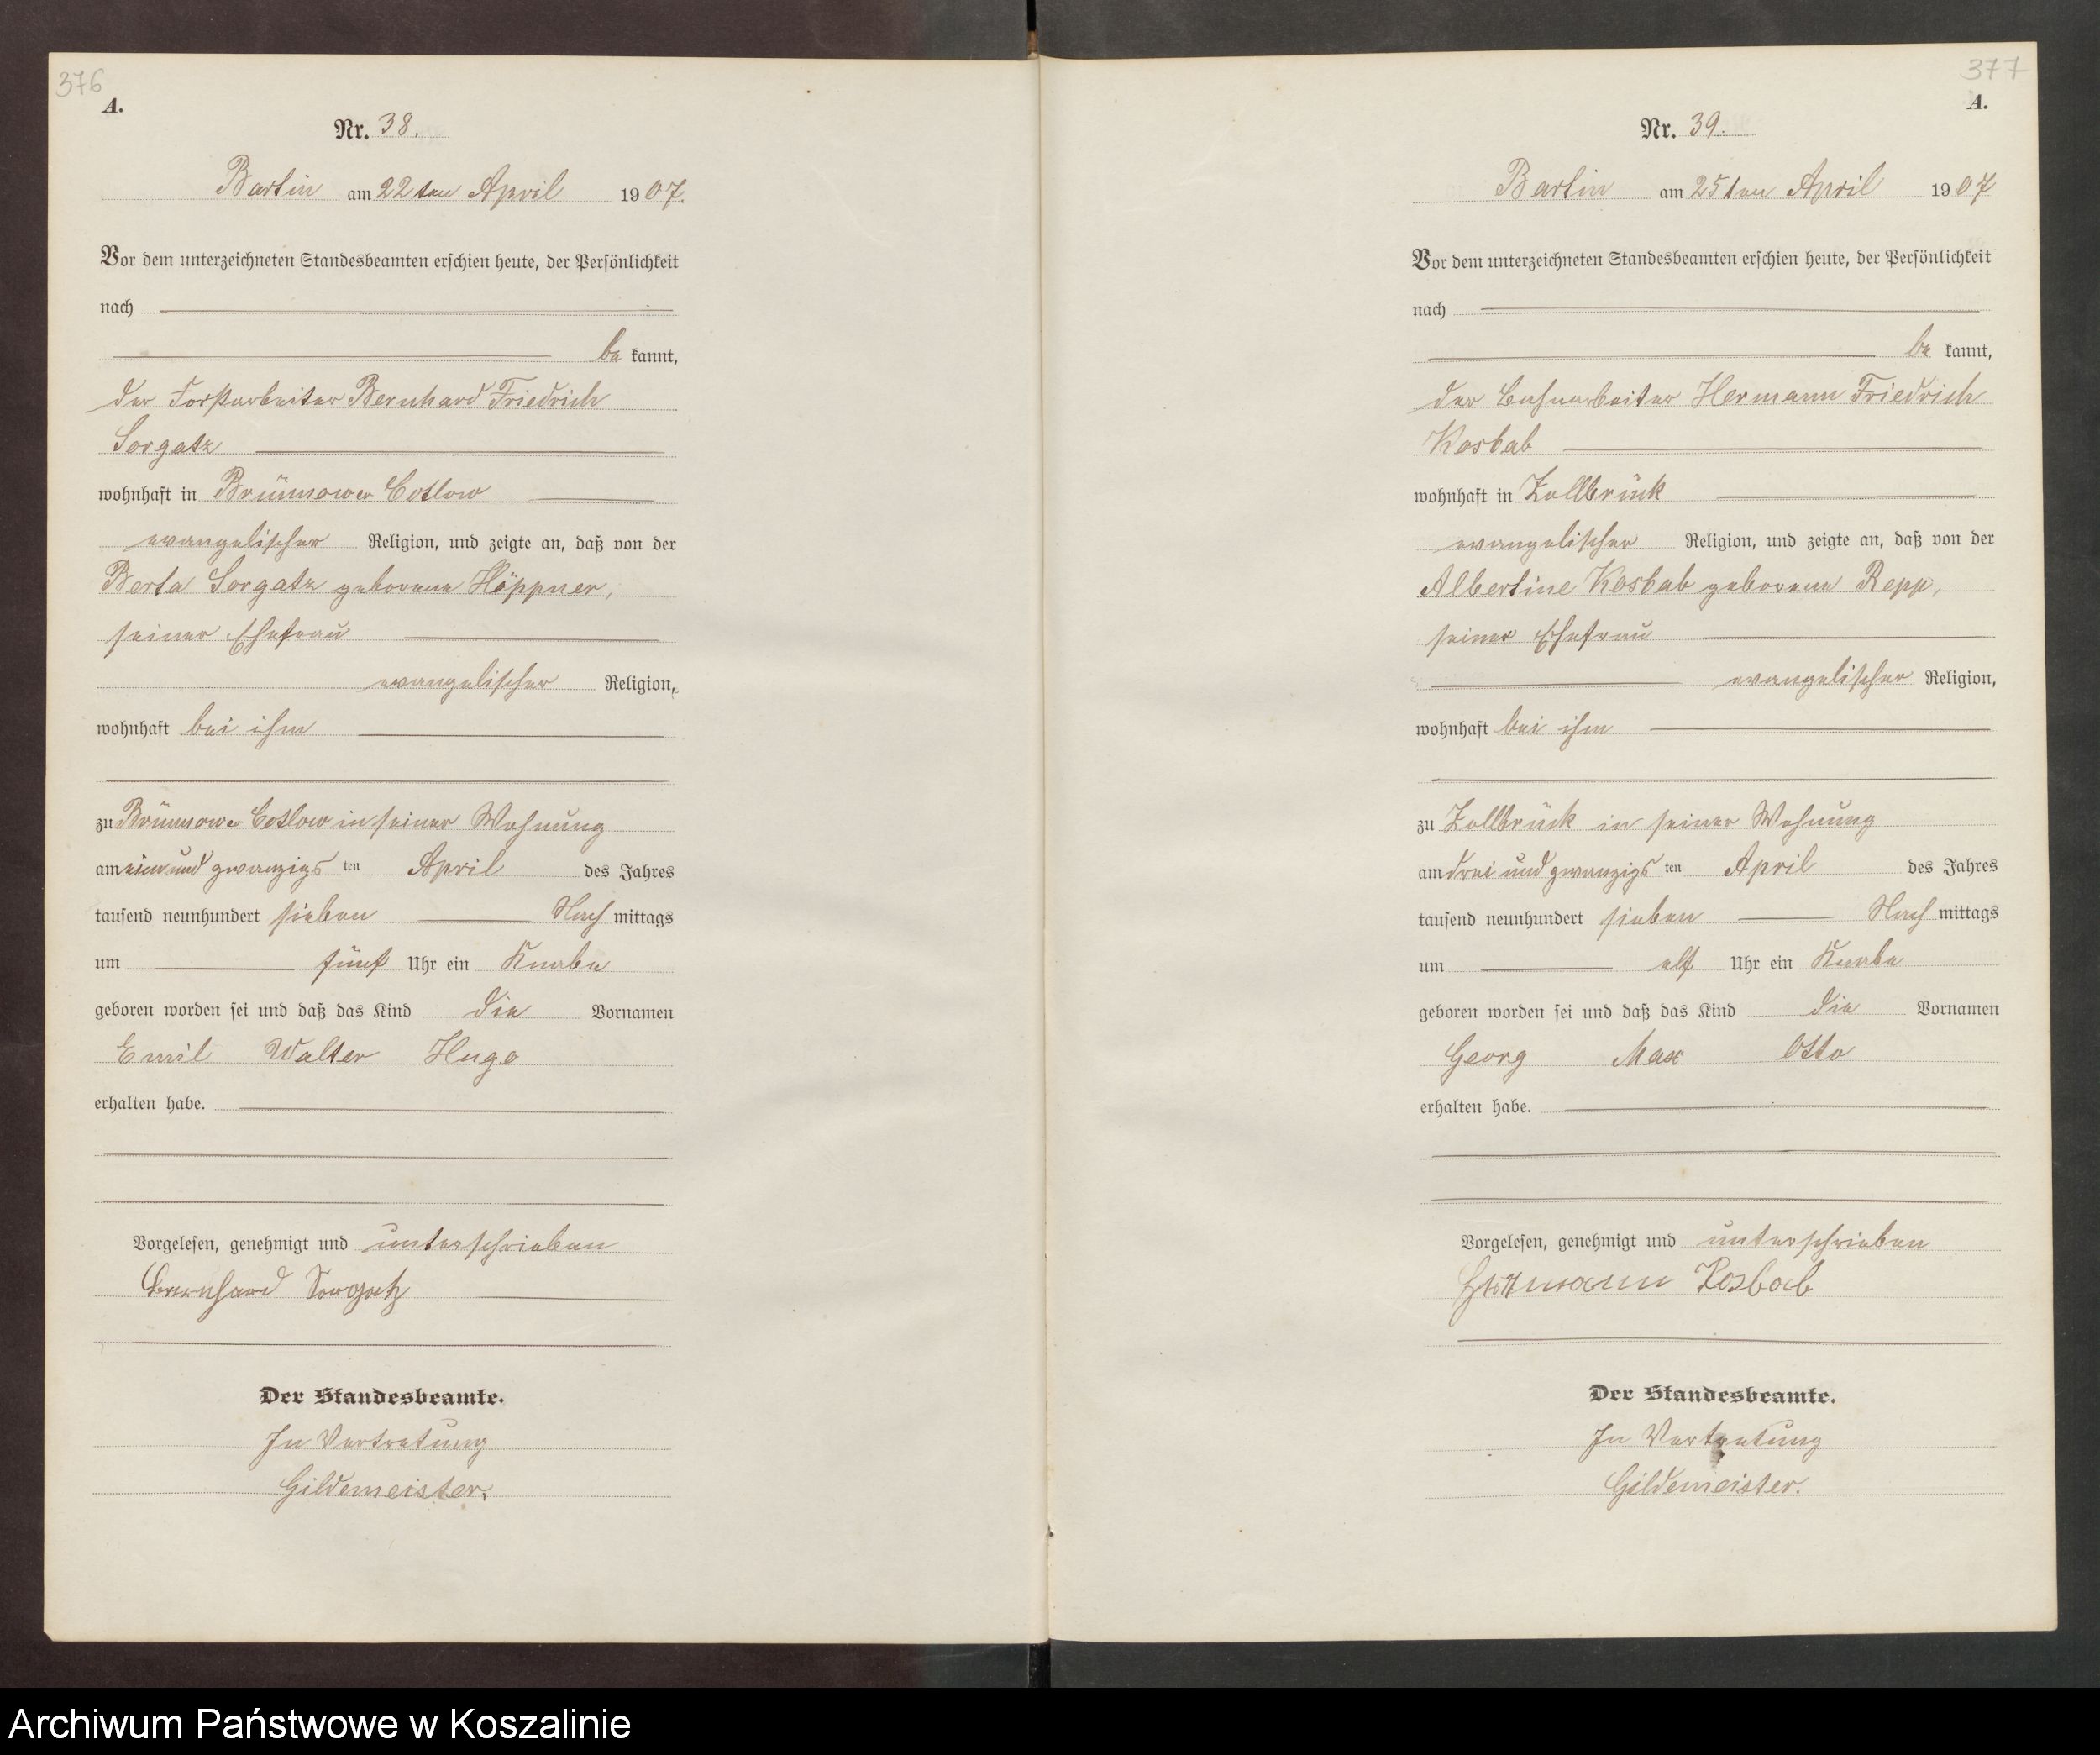 376
A.
Nr. 38.
Bartin am 22ten April 1907.
Vor dem unterzeichneten Standesbeamten erschien heute, der Persönlichkeit
nach
be kannt,
der Forstarbeiter Bernhard Friedrich
Sorgatz
wohnhaft in Brünnower Cotlow
evangelischer Religion, und zeigte an, daß von der
Berta Sorgatz geborene Höppner,
seiner Ehefrau
evangelischer Religion,
wohnhaft bei ihm
zu Brünnower Cotlow in seiner Wohnung
am ein und zwanzigs ten April des Jahres
tausend neunhundert sieben Nach mittags
um fünf Uhr ein Knabe
geboren worden sei und daß das Kind die Vornamen
Emil Walter Hugo
erhalten habe.
Vorgelesen, genehmigt und unterschrieben
Bernhard Sorgatz
Der Standesbeamte.
In Vertretung
Gildemeister.
377
A.
Nr. 39.
Bartin am 25ten April 1907
Vor dem unterzeichneten Standesbeamten erschien heute, der Persönlichkeit
nach
be kannt,
der Bahnarbeiter Hermann Friedrich
Kosbab
wohnhaft in Zollbrück
evangelischer Religion, und zeigte an, daß von der
Albertine Kosbab geborene Repp,
seiner Ehefrau
evangelischer Religion,
wohnhaft bei ihm
zu Zollbrück in seiner Wohnung
am drei und zwanzigs ten April des Jahres
tausend neunhundert sieben Nach mittags
um elf Uhr ein Knabe
geboren worden sei und daß das Kind die Vornamen
Georg Max Otto
erhalten habe.
Vorgelesen, genehmigt und unterschrieben
Hermann Kosbab
Der Standesbeamte.
In Vertretung
Gildemeister.
Archiwum Państwowe w Koszalinie